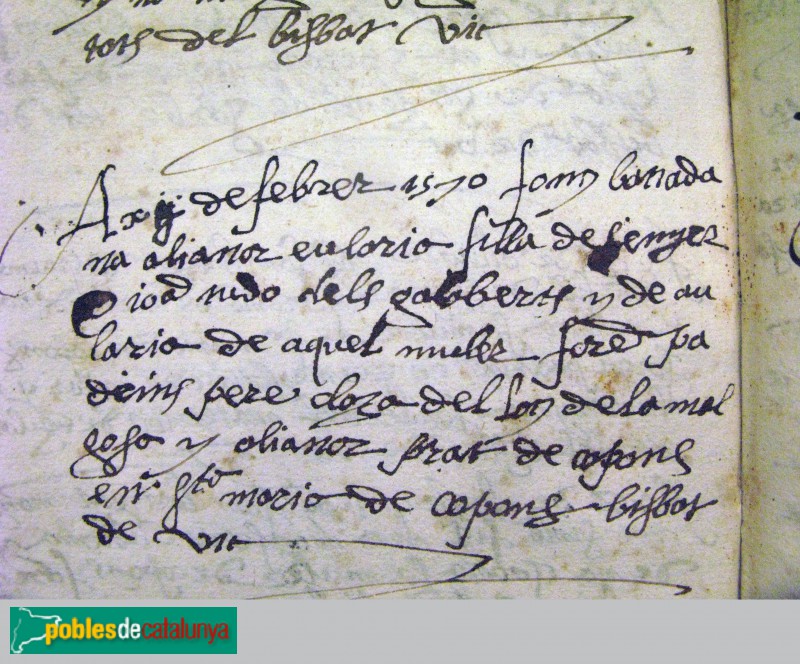 tots del bisbat vic
A xij de febrer 1570 fonc bateada
na alianor eularia filla de senyer
joā nedo dels galoberts y de au
laria de aquel muler forē pa
drins pere closa del loc de la mol
gosa y alianor prat de copons
en sta maria de copons bisbat
de vic
poblesdecatalunya